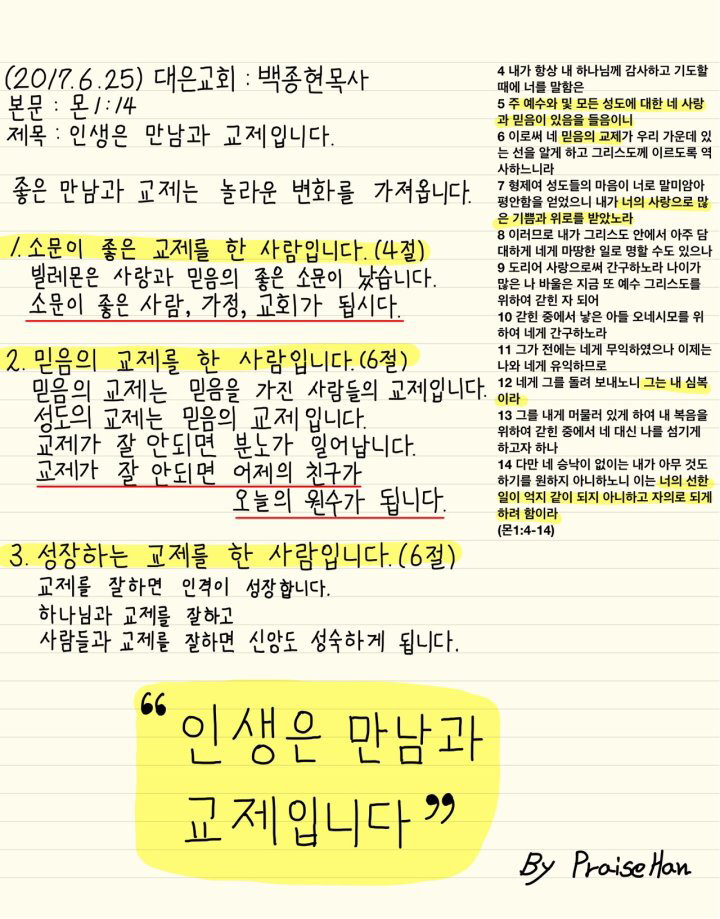 (2017.6.25) 대은교회 : 백종현목사
본문 : 몬1:14
제목 : 인생은 만남과 교제입니다.
좋은 만남과 교제는 놀라운 변화를 가져옵니다.
1. 소문이 좋은 교제를 한 사람입니다. (4절)
빌레몬은 사랑과 믿음의 좋은 소문이 났습니다.
소문이 좋은 사람, 가정, 교회가 됩시다.
2. 믿음의 교제를 한 사람입니다.(6절)
믿음의 교제는 믿음을 가진 사람들의 교제입니다.
성도의 교제는 믿음의 교제입니다.
교제가 잘 안되면 분노가 일어납니다.
교제가 잘 안되면 어제의 친구가
오늘의 원수가 됩니다.
3. 성장하는 교제를 한 사람입니다.(6절)
교제를 잘하면 인격이 성장합니다.
하나님과 교제를 잘하고
사람들과 교제를 잘하면 신앙도 성숙하게 됩니다.
“인생은 만남과
교제입니다”
By PraiseHan
4 내가 항상 내 하나님께 감사하고 기도할
때에 너를 말함은
5 주 예수와 및 모든 성도에 대한 네 사랑
과 믿음이 있음을 들음이니
6 이로써 네 믿음의 교제가 우리 가운데 있
는 선을 알게 하고 그리스도께 이르도록 역
사하느니라
7 형제여 성도들의 마음이 너로 말미암아
평안함을 얻었으니 내가 너의 사랑으로 많
은 기쁨과 위로를 받았노라
8 이러므로 내가 그리스도 안에서 아주 담
대하게 네게 마땅한 일로 명할 수도 있으나
9 도리어 사랑으로써 간구하노라 나이가
많은 나 바울은 지금 또 예수 그리스도를
위하여 갇힌 자 되어
10 갇힌 중에서 낳은 아들 오네시모를 위
하여 네게 간구하노라
11 그가 전에는 네게 무익하였으나 이제는
나와 네게 유익하므로
12 네게 그를 돌려 보내노니 그는 내 심복
이라
13 그를 내게 머물러 있게 하여 내 복음을
위하여 갇힌 중에서 네 대신 나를 섬기게
하고자 하나
14 다만 네 승낙이 없이는 내가 아무 것도
하기를 원하지 아니하노니 이는 너의 선한
일이 억지 같이 되지 아니하고 자의로 되게
하려 함이라
(몬1:4-14)